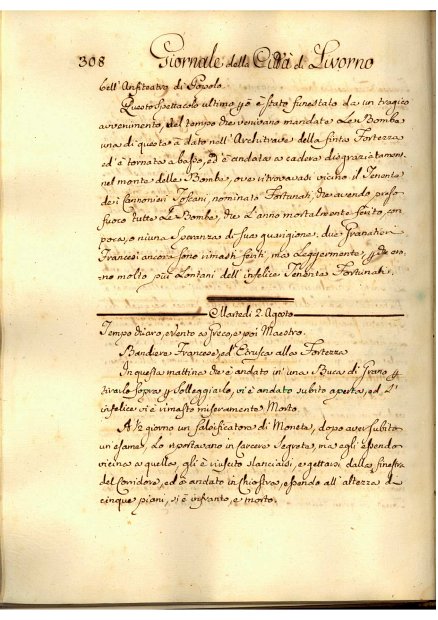 308 Giornale della Città di Livorno
bell'Anfiteatro di Popolo.
Questo Spettacolo ultimo però è stato funestato da un tragico
avvenimento, nel tempo che venivano mandate le Bombe
una di queste à dato nell'Architrave della finta Fortezza
ed è tornata a basso, ed è andata a cadere disgraziatamen.
nel monte delle Bombe, ove ritrovavasi vicino il Tenente
dei Cannonieri Toscani, nominato Fortunati, che avendo preso
fuoco tutte le Bombe, che l'anno mortalmente ferito, con
poca, o niuna Speranza di sua guarigione. due Granatieri
Francesi ancora sono rimasti feriti, ma leggermente, che
no molto più lontani dell'infelice Tenente Fortunati.
Martedì 2. Agosto
Tempo chiaro, e vento a Greco, e poi Maestro.
Bandiera Francese, ed Etrusca alla Fortezza
In questa mattina che è andato in una Buca di Grano p
tirarlo sopra p Solleggiarlo, vi è andato subito aperta, ed l'
infelice vi è rimasto miseramente Morto.
A ½ giorno un falsificatore di Moneta, dopo aver subito
un esame, lo riportavano in Carcere Segreta, ma egli essendo
vicino a quella, gli è riuscito slanciarsi, e gettarsi dalla finestra
del Corridore, ed è andato in Chiostra, essendo all'altezza di
cinque piani, si è infranto, e morto.